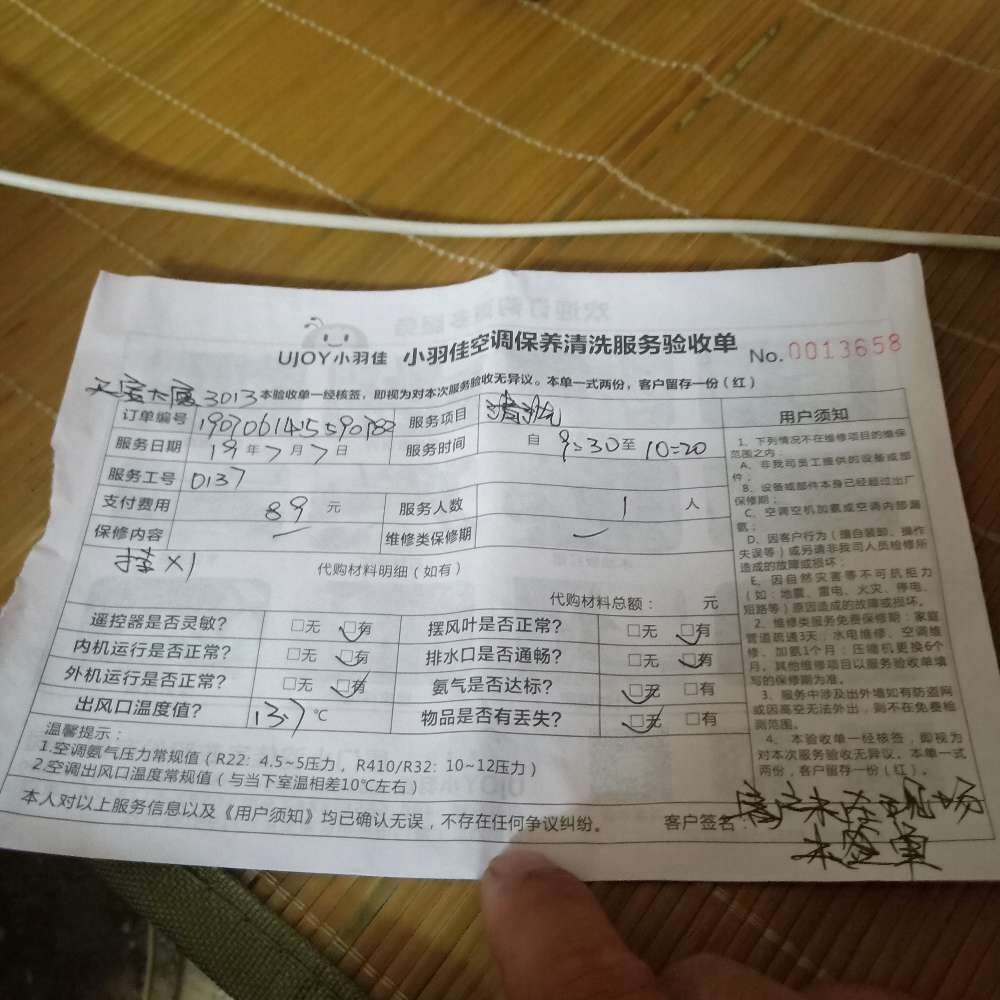 UJOY小羽佳 小羽佳空调保养清洗服务验收单 No.0013658
天宝大厦3013 本验收单一经核签，即视为对本次服务验收无异议。本单一式两份，客户留存一份（红）
订单编号 服务项目 清洗
服务日期 19年7月7日 服务时间 自9:30至10:20
服务工号 0137
支付费用 89元 服务人数 1人
保修内容 — 维修类保修期 —
挂×1 代购材料明细（如有）
代购材料总额： 元
遥控器是否灵敏？ □无 □有 摆风叶是否正常？ □无 □有
内机运行是否正常？ □无 □有 排水口是否通畅？ □无 □有
外机运行是否正常？ □无 □有 氨气是否达标？ □无 □有
出风口温度值？ 13.7℃ 物品是否有丢失？ □无 □有
温馨提示：
1.空调氨气压力常规值（R22：4.5~5压力，R410/R32：10~12压力）
2.空调出风口温度常规值（与当下室温相差10℃左右）
本人对以上服务信息以及《用户须知》均已确认无误，不存在任何争议纠纷。 客户签名：客户未在现场
未签单
用户须知
1、下列情况不在维修项目的维保
范围之内：
A、非我司员工提供的设备或部
件；
B、设备或部件本身已经超过出厂
保修期；
C、空调空机加氨或空调内部漏
氨；
D、因客户行为（擅自装卸、操作
失误等）或另请非我司人员检修所
造成的故障或损坏；
E、因自然灾害等不可抗拒力
（如：地震、雷电、火灾、停电、
短路等）原因造成的故障或损坏。
2、维修类服务免费保修期：家庭
管道疏通3天；水电维修、空调维
修、加氨1个月；压缩机更换6个
月。其他维修项目以服务验收单填
写的保修期为准。
3、服务中涉及出外墙如有防盗网
或因高空无法外出，则不在免费检
测范围。
4、本验收单一经核签，即视为
对本次服务验收无异议。本单一式
两份，客户留存一份（红）。